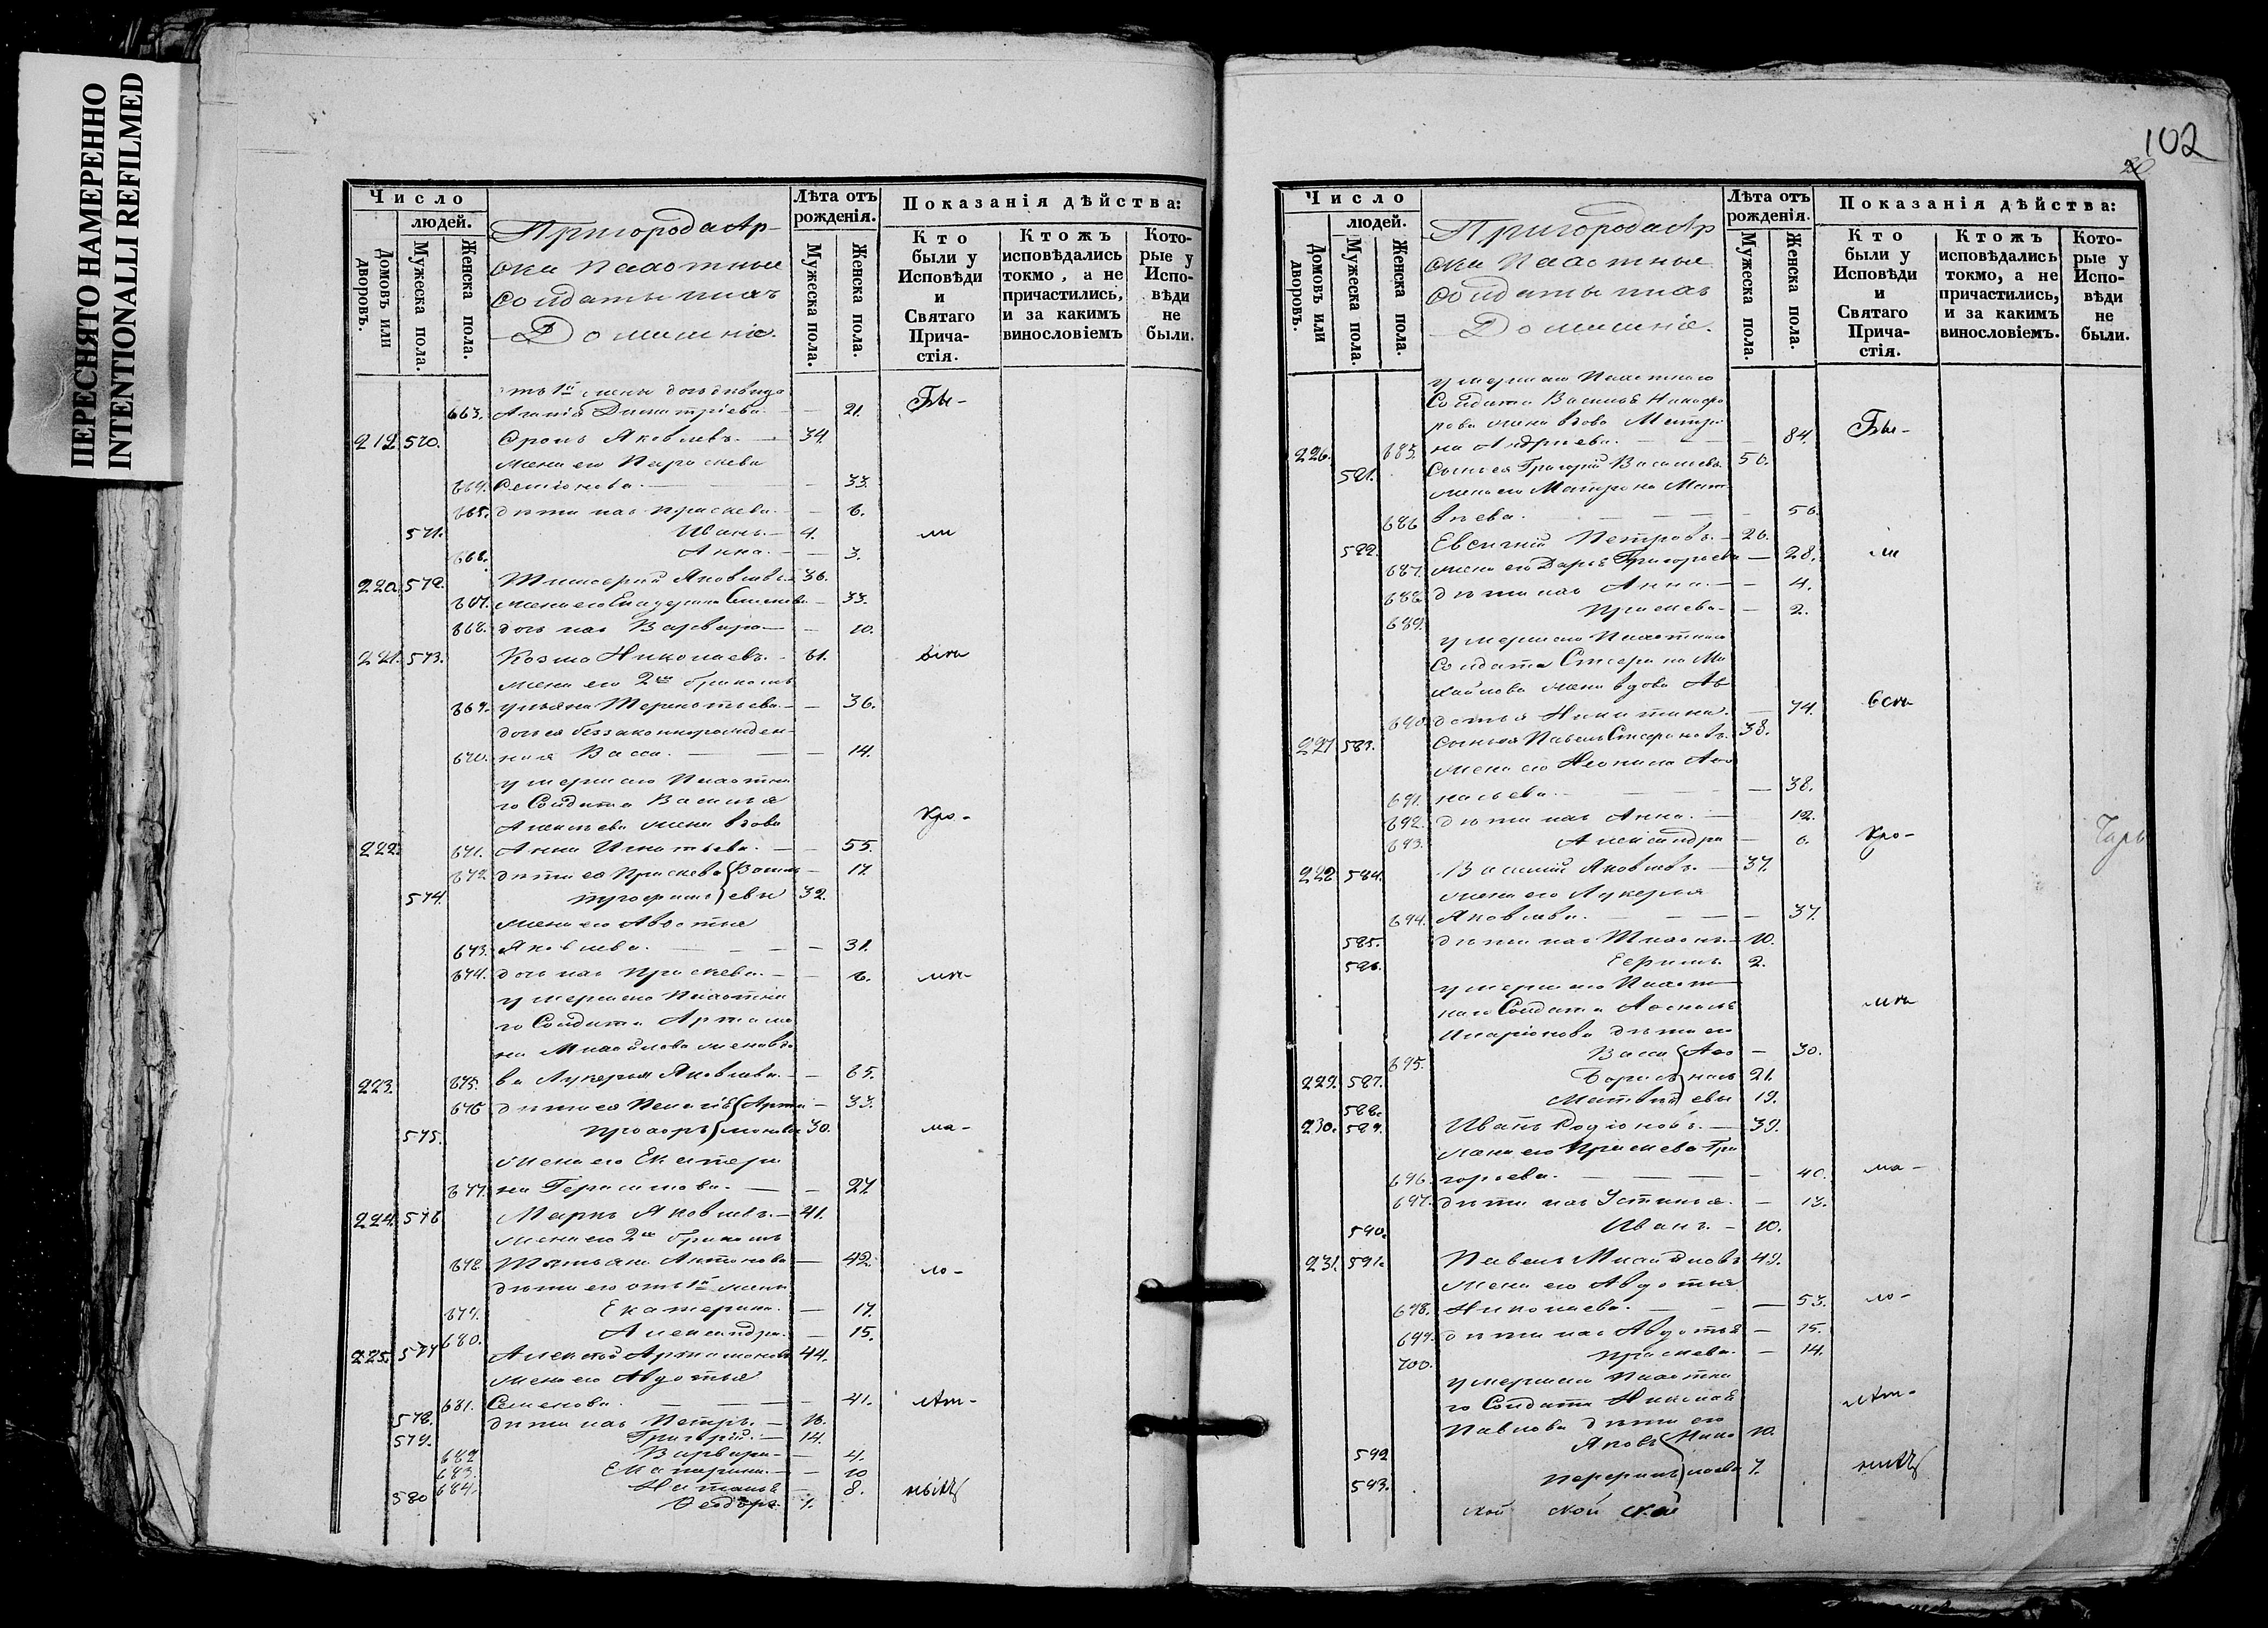 ПЕРЕСНЯТО НАМЕРЕННО
INTENTIONALLI REFILMED
Число
людей.
Домовъ или дворовъ.
Мужеска пола.
Женска пола.
Пригорода Ар-
ска Пахотные
Солдаты ихъ
Домашніе.
Лѣта отъ рожденія.
Мужеска пола.
Женска пола.
Показанія дѣйства:
Кто были у Исповѣди и Святаго Причастія.
Ктожъ исповѣдались токмо, а не причастились, и за какимъ винословіемъ
Которые у Исповѣди не были.
663. Агапія Димитріева. — 21. Бы-
219. 570. Фролъ Яковлевъ. — 34.
жена его Параскева
664. Семіонова. — 33.
665. дѣти ихъ Праскева. — 6.
571. Иванъ. — 4. ли
666. Анна. — 3.
220. 572. Тимофей Яковлевъ. 36.
667. жена его Екатерина Семенова — 33.
668. дочь ихъ Варвара — 10.
221. 573. Козма Николаевъ. 61.
жена его 2мъ бракомъ
669. Ульяна Терентьева. — 36.
дочь ея беззаконнорожден-
670. ная Васса. — 14.
умершаго Пахотна-
го Солдата Василья
жена вдова
222. 671. Анна Игнатьева. — 55. Кро-
672. дѣти ея Праскева Василь — 17.
574. Трофимъ евы 32.
жена его Авдотья
673. Яковлева. — 31.
674. дочь ихъ Праскева. — 6.
умершаго Пахотна
го Солдата Артамо
на Михайлова жена вдо
223. 675. ва Лукерья Яковлева. — 65.
676 дѣти ея Пелагія Арта — 33.
575. Прохоръ моновы 30. ма-
жена его Екатери
677. на Герасимова. — 27.
224. 576 Маркъ Яковлевъ. — 41.
жена его 2мъ бракомъ
678. Татьяна Антонова — 42. ло-
дѣти его отъ 1й жены
679. Екатерина. — 17.
680. Александра. — 15.
225. 577 Алексѣй Артамоновъ 44.
жена его Авдотья
681. Семенова. — 41. лѣт-
578. дѣти ихъ Петръ. — 16.
579. Григорій. — 14.
682 Варвара — 4.
683. Екатерина. — 10
684. Наталья — 8.
580 Ѳедоръ. 1.
102
Число
людей.
Домовъ или дворовъ.
Мужеска пола.
Женска пола.
Пригорода Ар
ска Пахотные
Солдаты ихъ
Домашніе.
Лѣта отъ рожденія.
Мужеска пола.
Женска пола.
Показанія дѣйства:
Кто были у Исповѣди и Святаго Причастія.
Ктожъ исповѣдались токмо, а не причастились, и за какимъ винословіемъ.
Которые у Исповѣди не были.
умершаго Пахотнаго
Солдата Василья Никифо
рова жена вдова Матре
226. 685. на Андреева. — 84. Бы-
581. Сынъ ея Григорій Васильевъ 56.
жена его Матрена Мат
686 вѣева. — 56.
582. Евсигній Петровъ. — 26.
687. жена его Дарья Григорьева — 28. ли
688 дѣти ихъ Анна. — 4.
689. Праскева — 2.
умершаго Пахотнаго
Солдата Стефана Ми
хайлова жена вдова Ав
690. дотья Никитина. — 74. всѣ
227 583. Сынъ ея Павелъ Стефановъ. 38.
жена его Неонила Афа
691. насьева. — 38.
692. дѣти ихъ Анна. — 12.
693. Александра — 6. Кро-
228 584. Василій Яковлевъ. — 37.
жена его Лукерья
694. Яковлева. — 37.
585. дѣти ихъ — 10.
586. Ефимъ. 2.
умершаго Пахот
наго Солдата Афонасья
Иларіонова дѣти его
695. Васса Афо — 30.
229. 587. Борисъ нась 21.
588. Матвѣй евы 19.
230. 589. Иванъ Родіоновъ. — 39.
жена его Праскева Гри
696. горьева. — 40. ма-
697. дѣти ихъ Устинья. — 13.
590. Иванъ. — 10.
231. 591. Павелъ Михайловъ 49.
жена его Авдотья
698. Николаева. — 53. ло-
699. дѣти ихъ Авдотья — 15.
700. Праскева. — 14.
умершаго Пахотна
го Солдата Николая
Павлова дѣти его
592 Яковъ Нико 10.
593. Перфилъ лаевы 7.